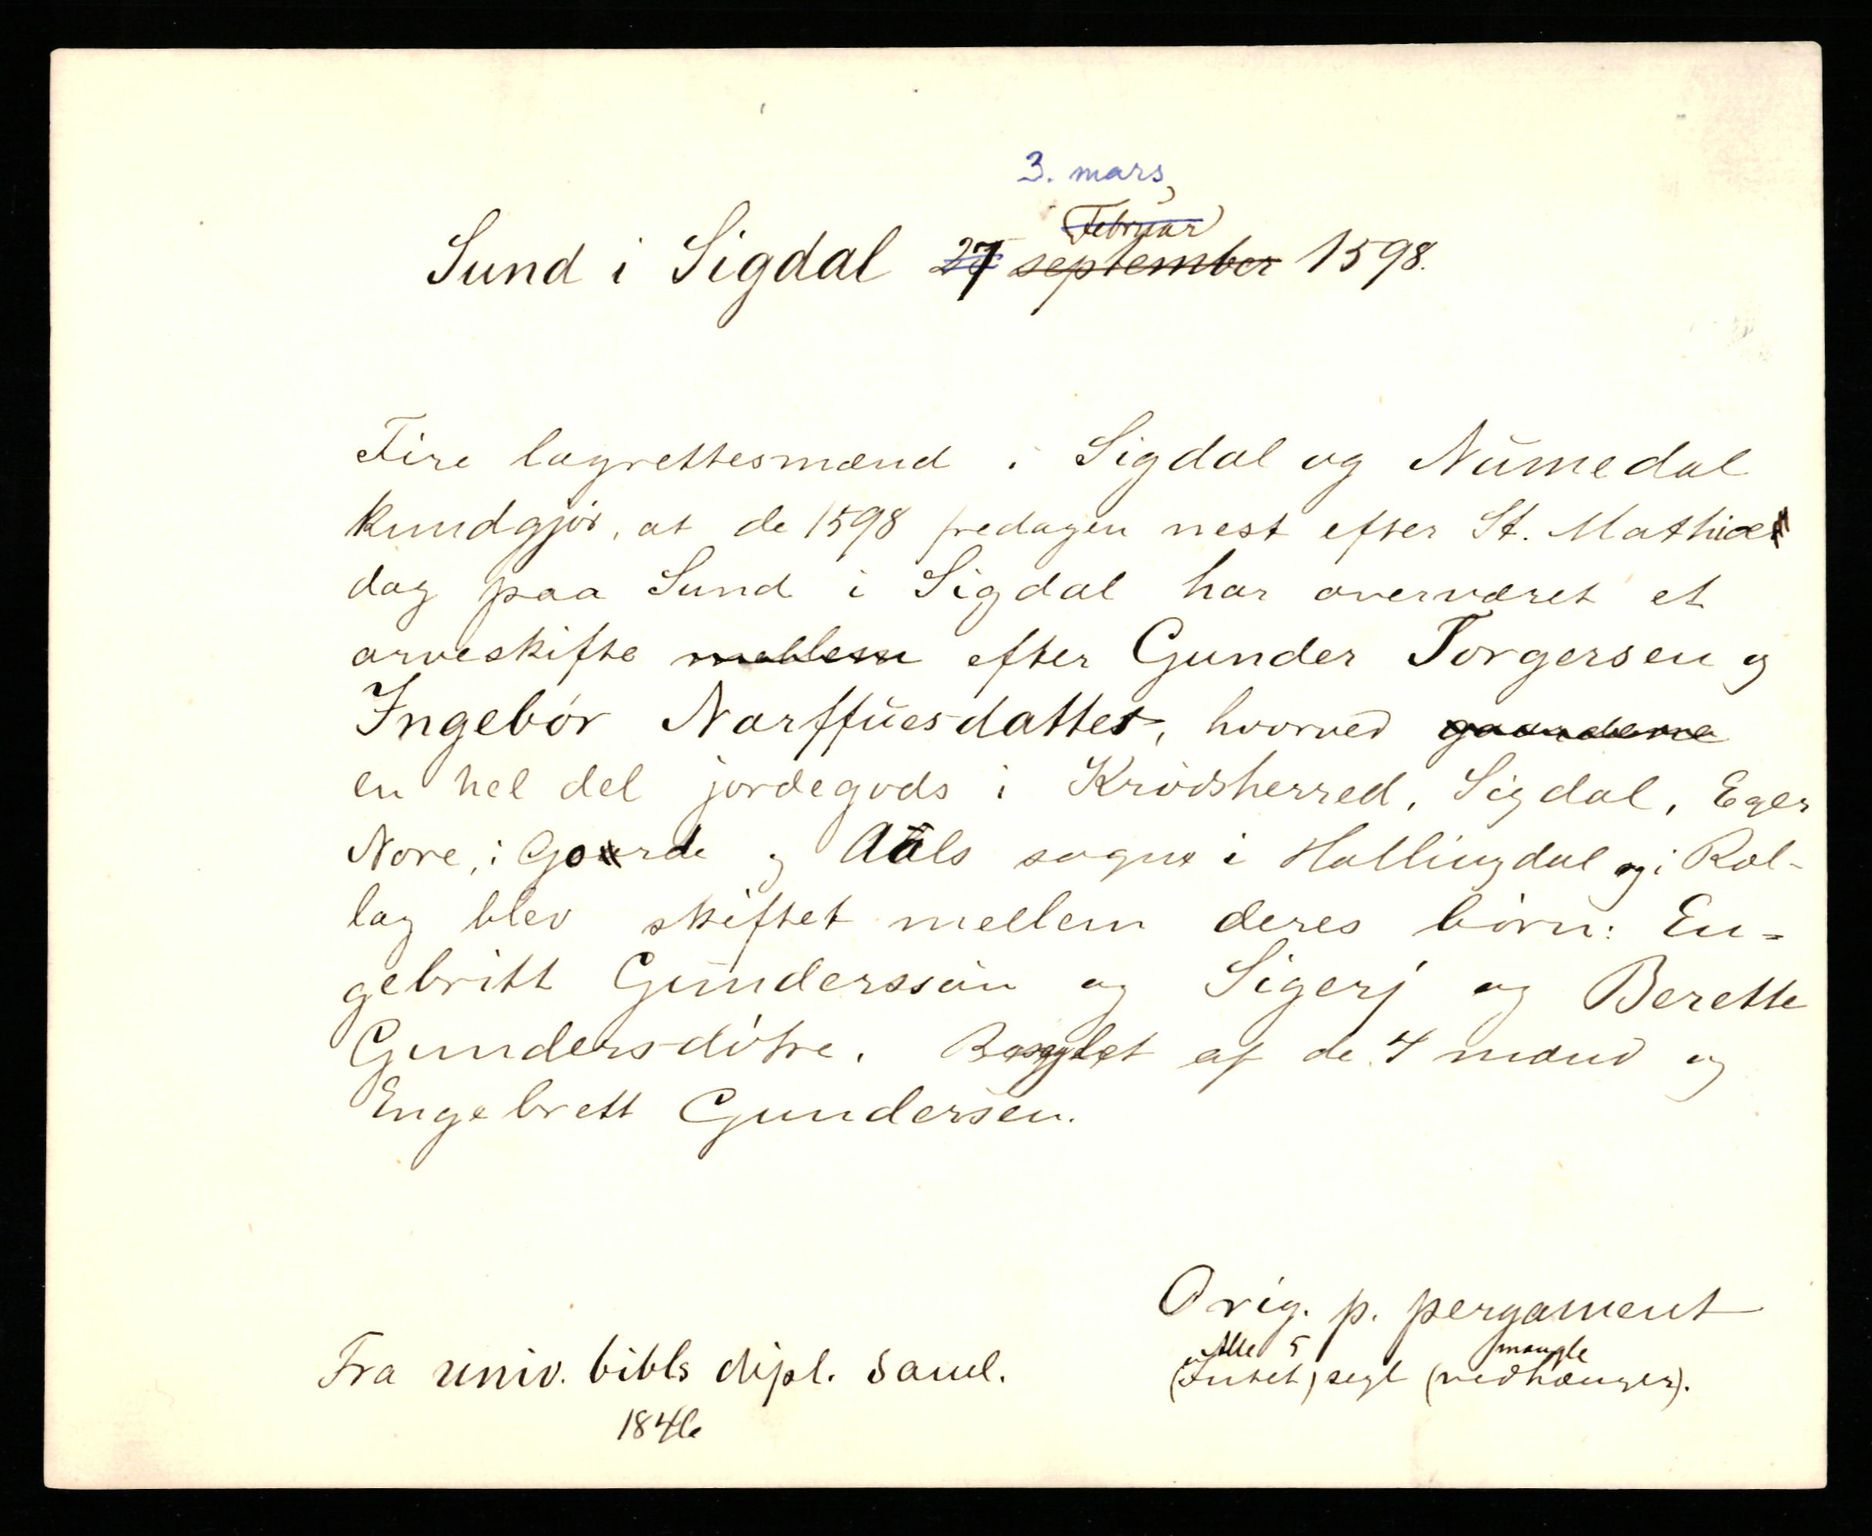 3. mars
Februar
Sund i Sigdal 27 september 1598.
Fire lagrettesmænd i Sigdal og Numedal
kundgjør, at de 1598 fredagen nest efter St. Mathiæ
dag paa Sund i Sigdal har overværet et
arveskifte mellem efter Gunder Torgersen og
Ingebór Narffuesdatter, hvorved gaarderne
en hel del jordegods i Krødsherred, Sigdal, Eger
Nore, i Goerde og Aals sogne i Hallingdal og i Rol-
lag blev skiftet mellem deres børn: En-
gebritt Gunderssøn og Sigerj og Berette
Gundersdøtre. Beseglet af de 4 mænd og
Engebrett Gundersen.
Orig. p. pergament
Alle 5 mangle
(Intet) segl (vedhænger).
Fra univ. bibls dipl. saml.
1846